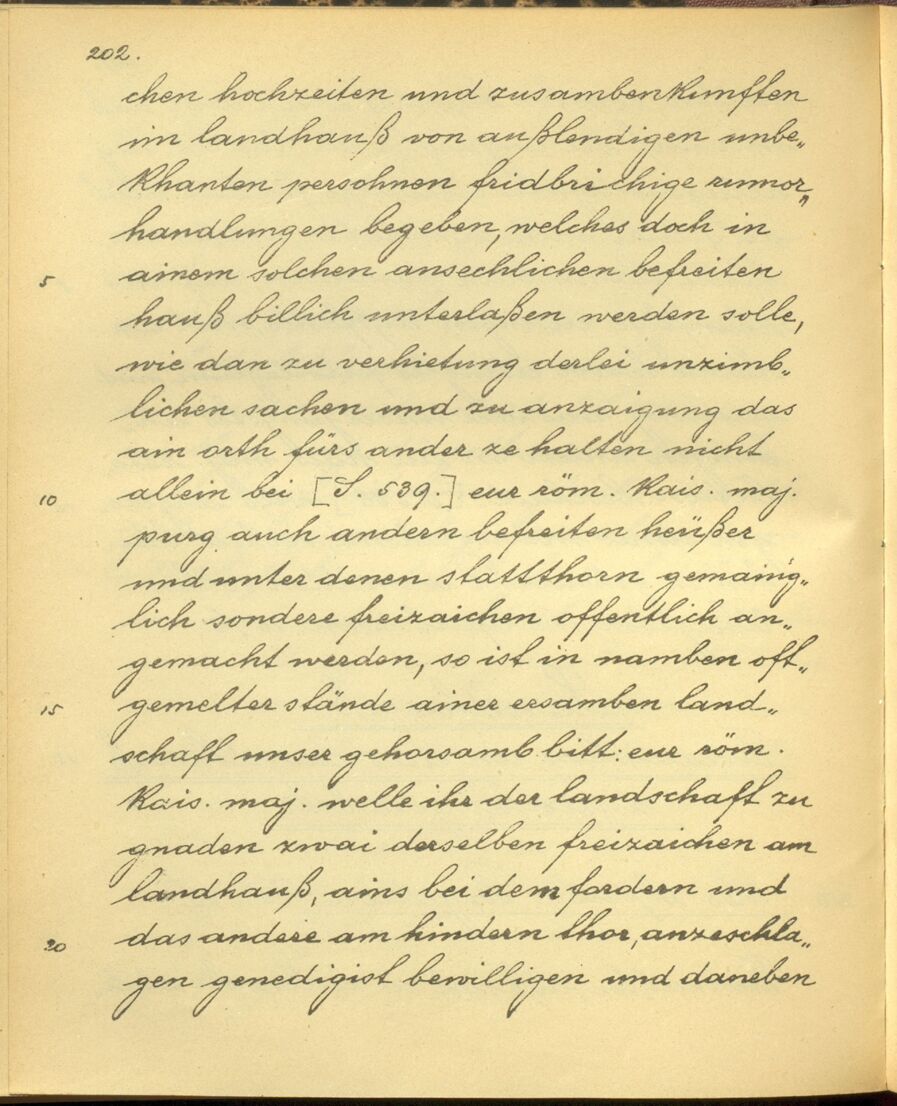 202.
chen hochzeiten und zusambenkunfften
im landhauß von außlendigen unbe„
khanten persohnen fridbrichige rumor„
handlungen begeben, welches doch in
5 ainem solchen ansechlichen befreiten
hauß billich unterlaßen werden solle,
wie dan zu verhietung derlei unzimb„
lichen sachen und zu anzaigung das
ain orth fürs ander ze halten nicht
10 allein bei [S. 539.] eur röm. kais. maj.
purg auch andern befreiten heüßer
und unter denen stattthorn gemainig„
lich sondere freizaichen offentlich an„
gemacht werden, so ist in namben oft„
15 gemelter stände ainer ersamben land„
schaft unser gehorsamb bitt: eur röm.
kais. maj. welle ihr der landschaft zu
gnaden zwai derselben freizaichen am
landhauß, ains bei dem fordern und
20 das andere am hindern thor, anzeschla„
gen genedigist bewilligen und daneben